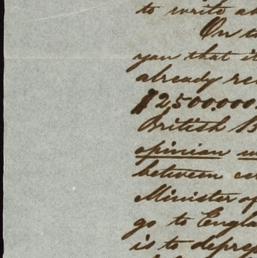 to write a
On
you that it
already re
$2,500,000.
British B
opinion
between ce
Minister of
go to Engla
is to depre